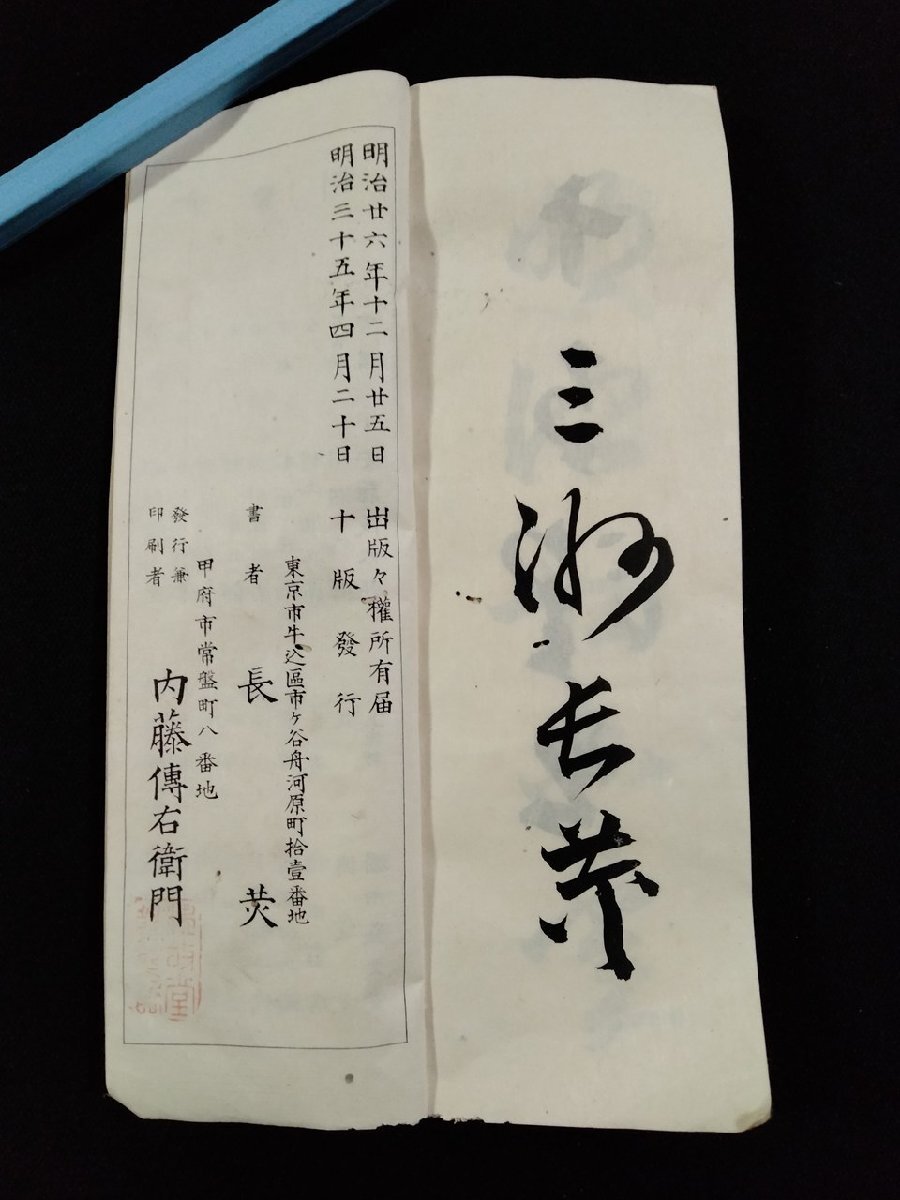 三洲長炗
明治廿六年十二月廿五日 出版々權所有届
明治三十五年四月二十日 十版發行
東京市牛込區市ヶ谷舟河原町拾壹番地
書者 長炗
甲府市常盤町八番地
發行兼
印刷者 内藤傳右衛門